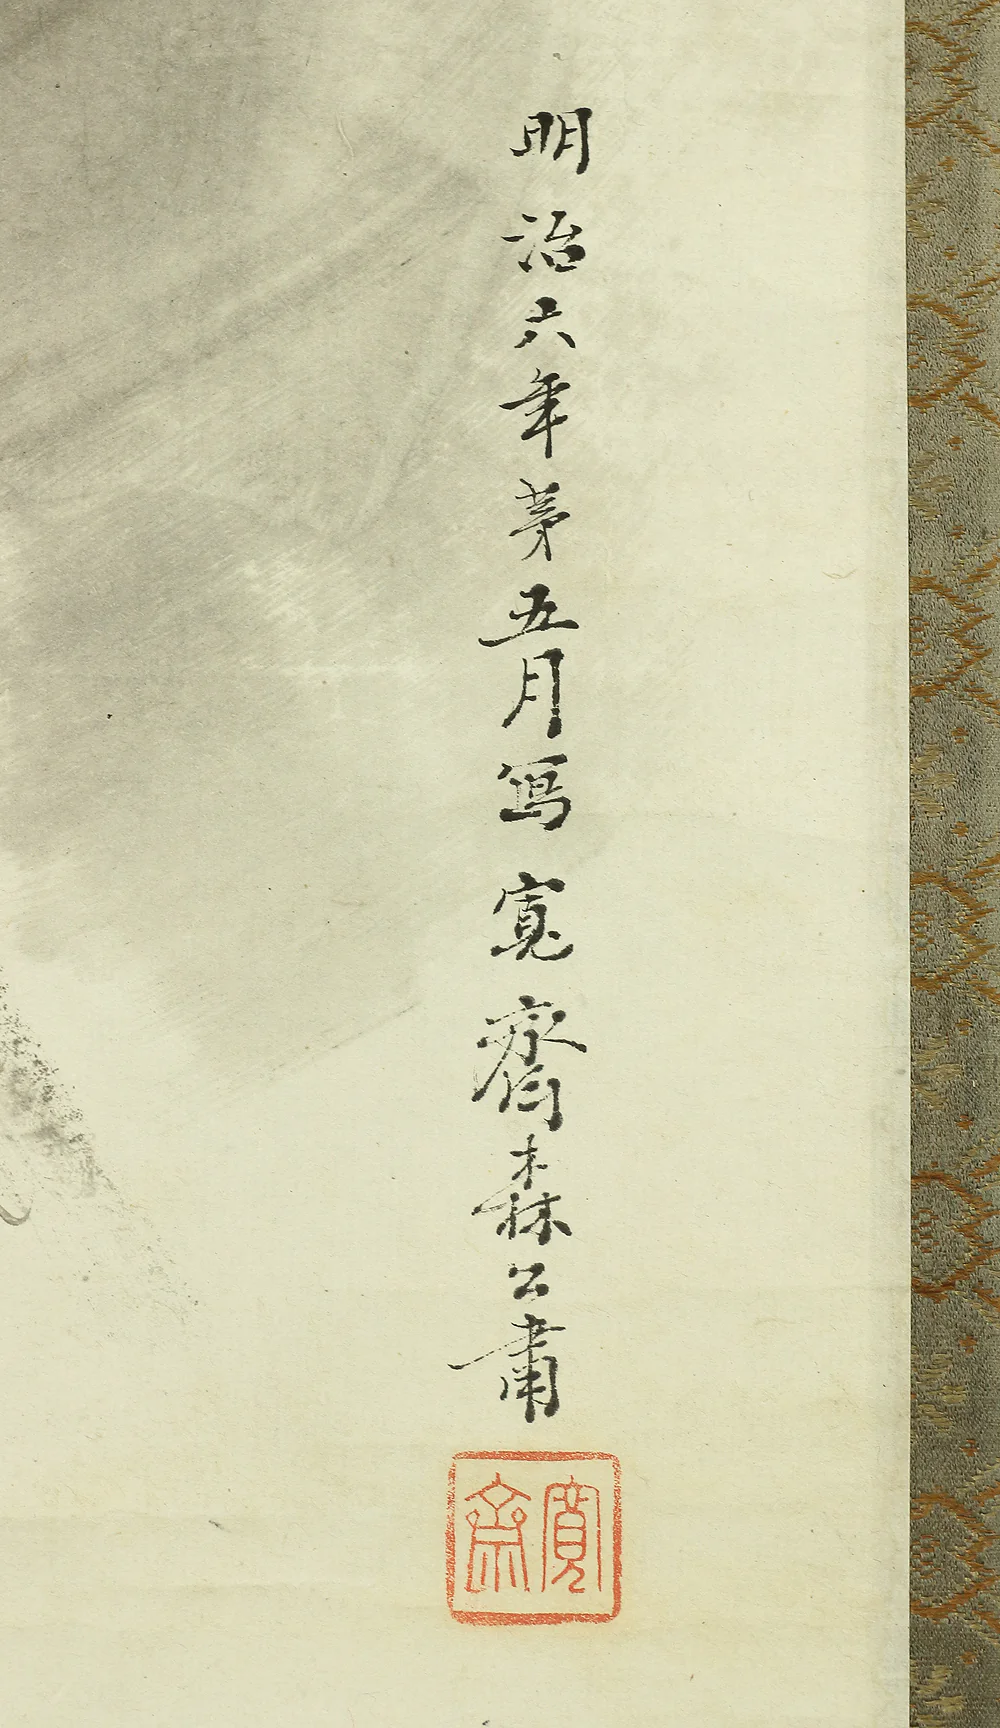 明治六年第五月寫寛齊森公肅
寛齋